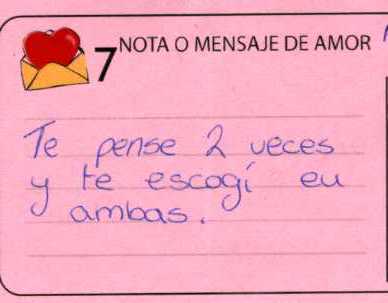 7 NOTA O MENSAJE DE AMOR
Te pense 2 veces
y te escogí en
ambas.